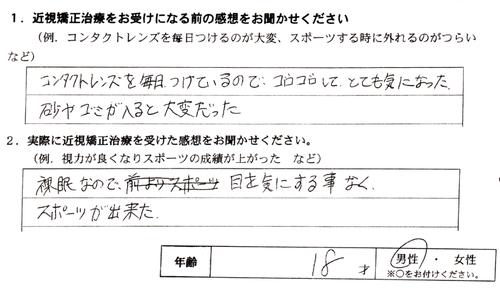 １．近視矯正治療をお受けになる前の感想をお聞かせください
（例．コンタクトレンズを毎日つけるのが大変、スポーツする時に外れるのがつらい
など）
コンタクトレンズを毎日つけているので、ゴロゴロして、とても気になった
砂やゴミが入ると大変だった
２．実際に近視矯正治療を受けた感想をお聞かせください。
（例．視力が良くなりスポーツの成績が上がった　など）
裸眼なので、前よりスポーツ 目を気にする事なく、
スポーツが出来た。
年齢 18 才 男性 ・ 女性
※○をお付けください。